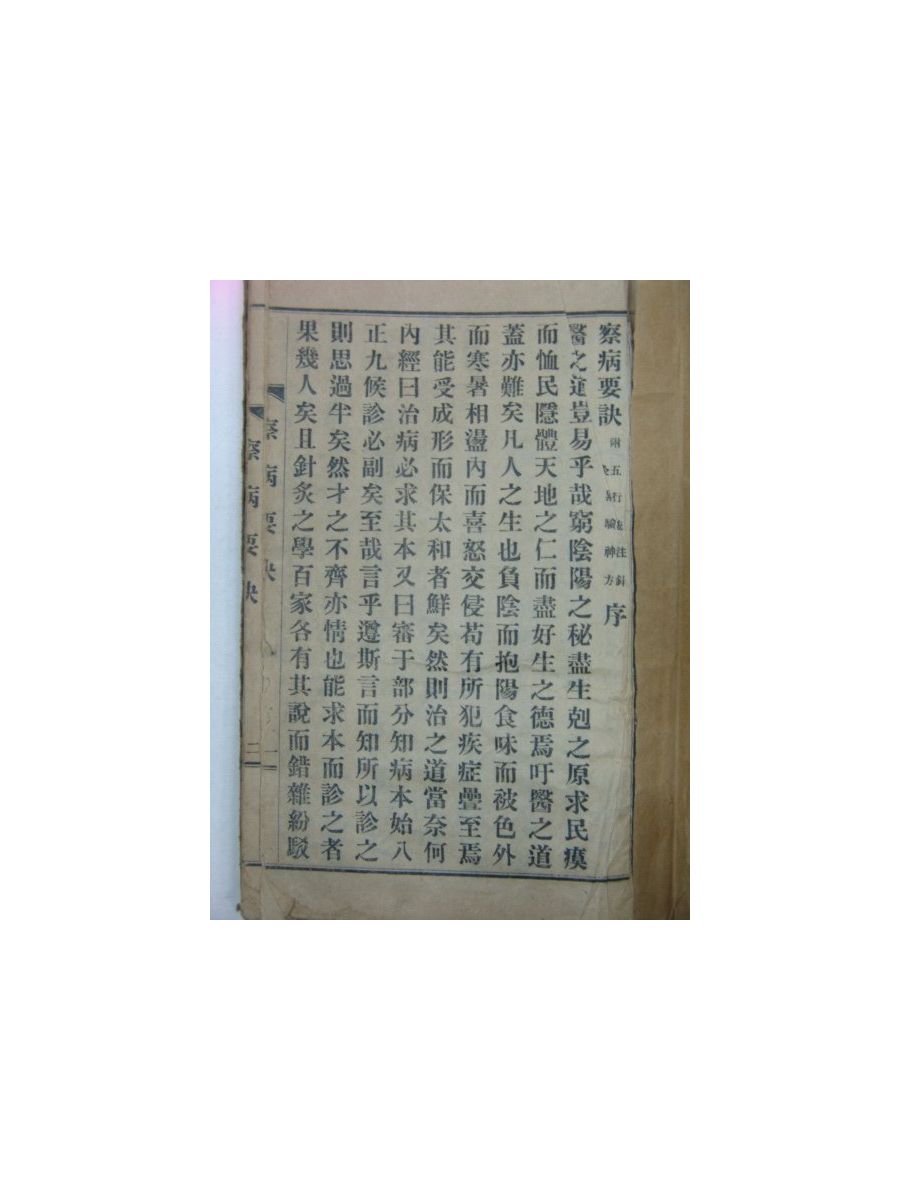 察病要訣 附五行 注針 驗神方 序
醫之道豈易乎哉窮陰陽之秘盡生剋之原求民瘼
而恤民隱體天地之仁而盡好生之德焉吁醫之道
蓋亦難矣凡人之生也負陰而抱陽食味而被色外
而寒暑相盪內而喜怒交侵苟有所犯疾症疊至焉
其能受成形而保太和者鮮矣然則治之道當奈何
內經曰治病必求其本又曰審于部分知病本始八
正九候診必副矣至哉言乎遵斯言而知所以診之
則思過半矣然才之不齊亦情也能求本而診之者
果幾人矣且針炙之學百家各有其說而錯雜紛駁
察病要訣 一
察病要訣 二